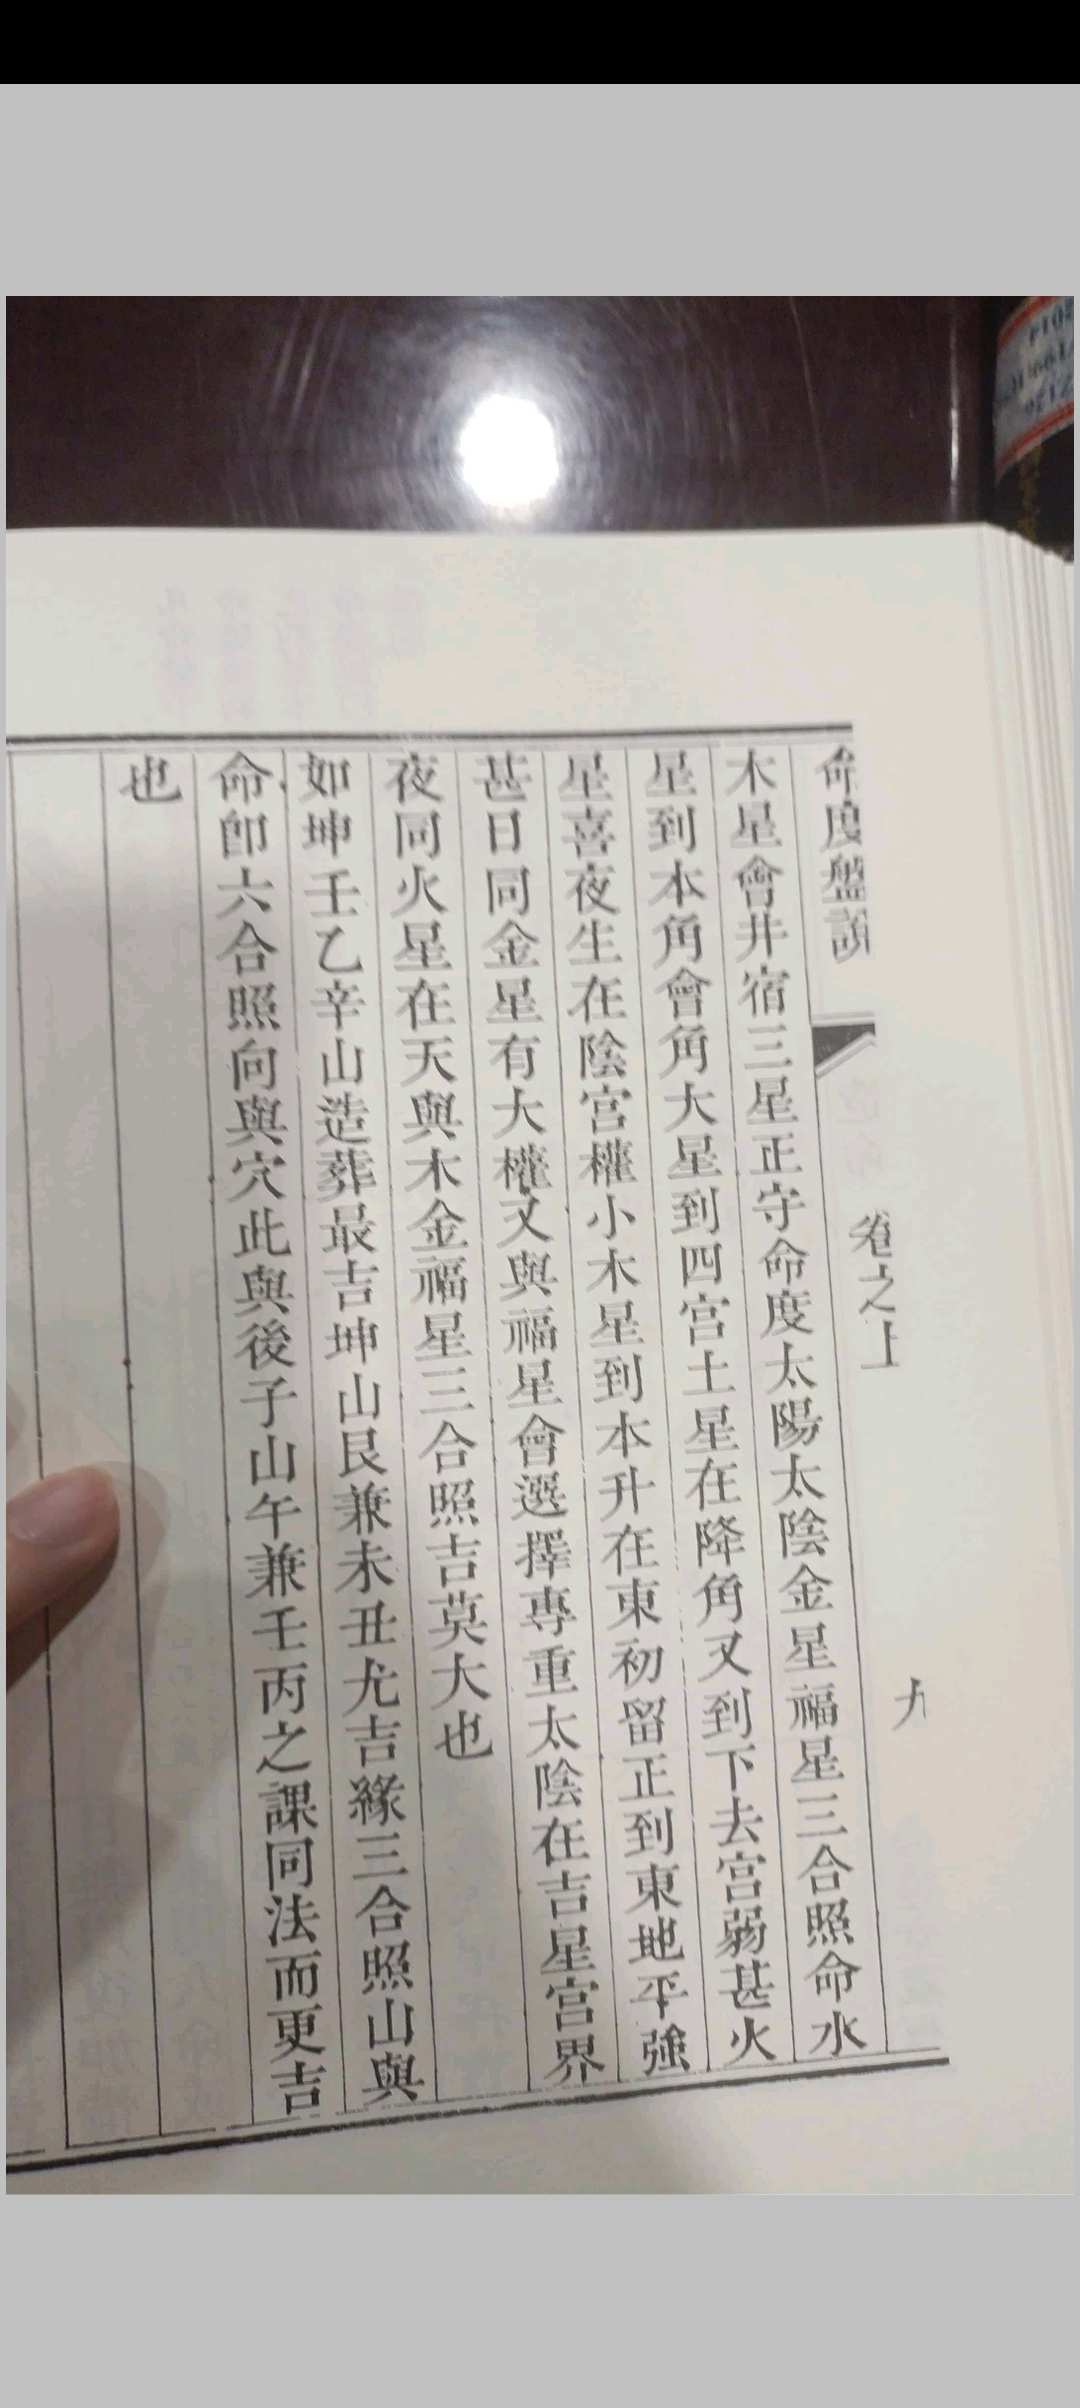 命度盤說 卷之上 九
木星會井宿三星正守命度太陽太陰金星福星三合照命水
星到本角會角大星到四宮土星在降角又到下去宮弱甚火
星喜夜生在陰宮權小木星到本升在東初留正到東地平強
甚日同金星有大權又與福星會選擇專重太陰在吉星宮界
夜同火星在天與木金福星三合照吉莫大也
如坤壬乙辛山造葬最吉坤山艮兼未丑尤吉緣三合照山與
命卽六合照向與穴此與後子山午兼壬丙之課同法而更吉
也